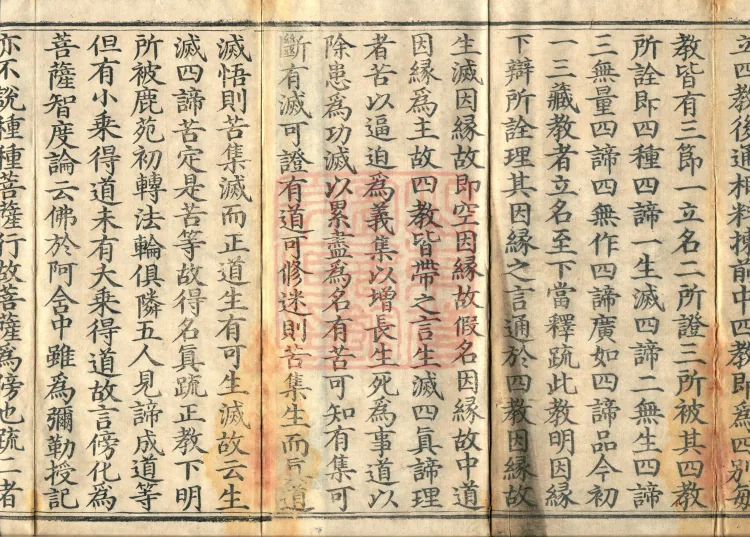 立四教後通相料揀前中四教即為四別每
教皆有三節一立名二所證三所被其四教
所詮即四種四諦一生滅四諦二無生四諦
三無量四諦四無作四諦廣如四諦品今初
一三藏教者立名至下當釋疏此教明因緣
下辯所詮理其因緣之言通於四教因緣故
生滅因緣故即空因緣故假名因緣故中道
因緣為主故四教皆帶之言生滅四真諦理
者苦以逼迫為義集以增長生死為事道以
除患為功滅以累盡為名有苦可知有集可
斷有滅可證有道可修迷則苦集生而
道
滅悟則苦集滅而正道生有可生滅故云生
滅四諦苦定是苦等故得名真疏正教下明
所被鹿苑初轉法輪俱隣五人見諦成道等
但有小乘得道未有大乘得道故言傍化為
菩薩智度論云佛於阿含中雖為彌勒授記
亦不說種種菩薩行故菩薩為傍也疏二者